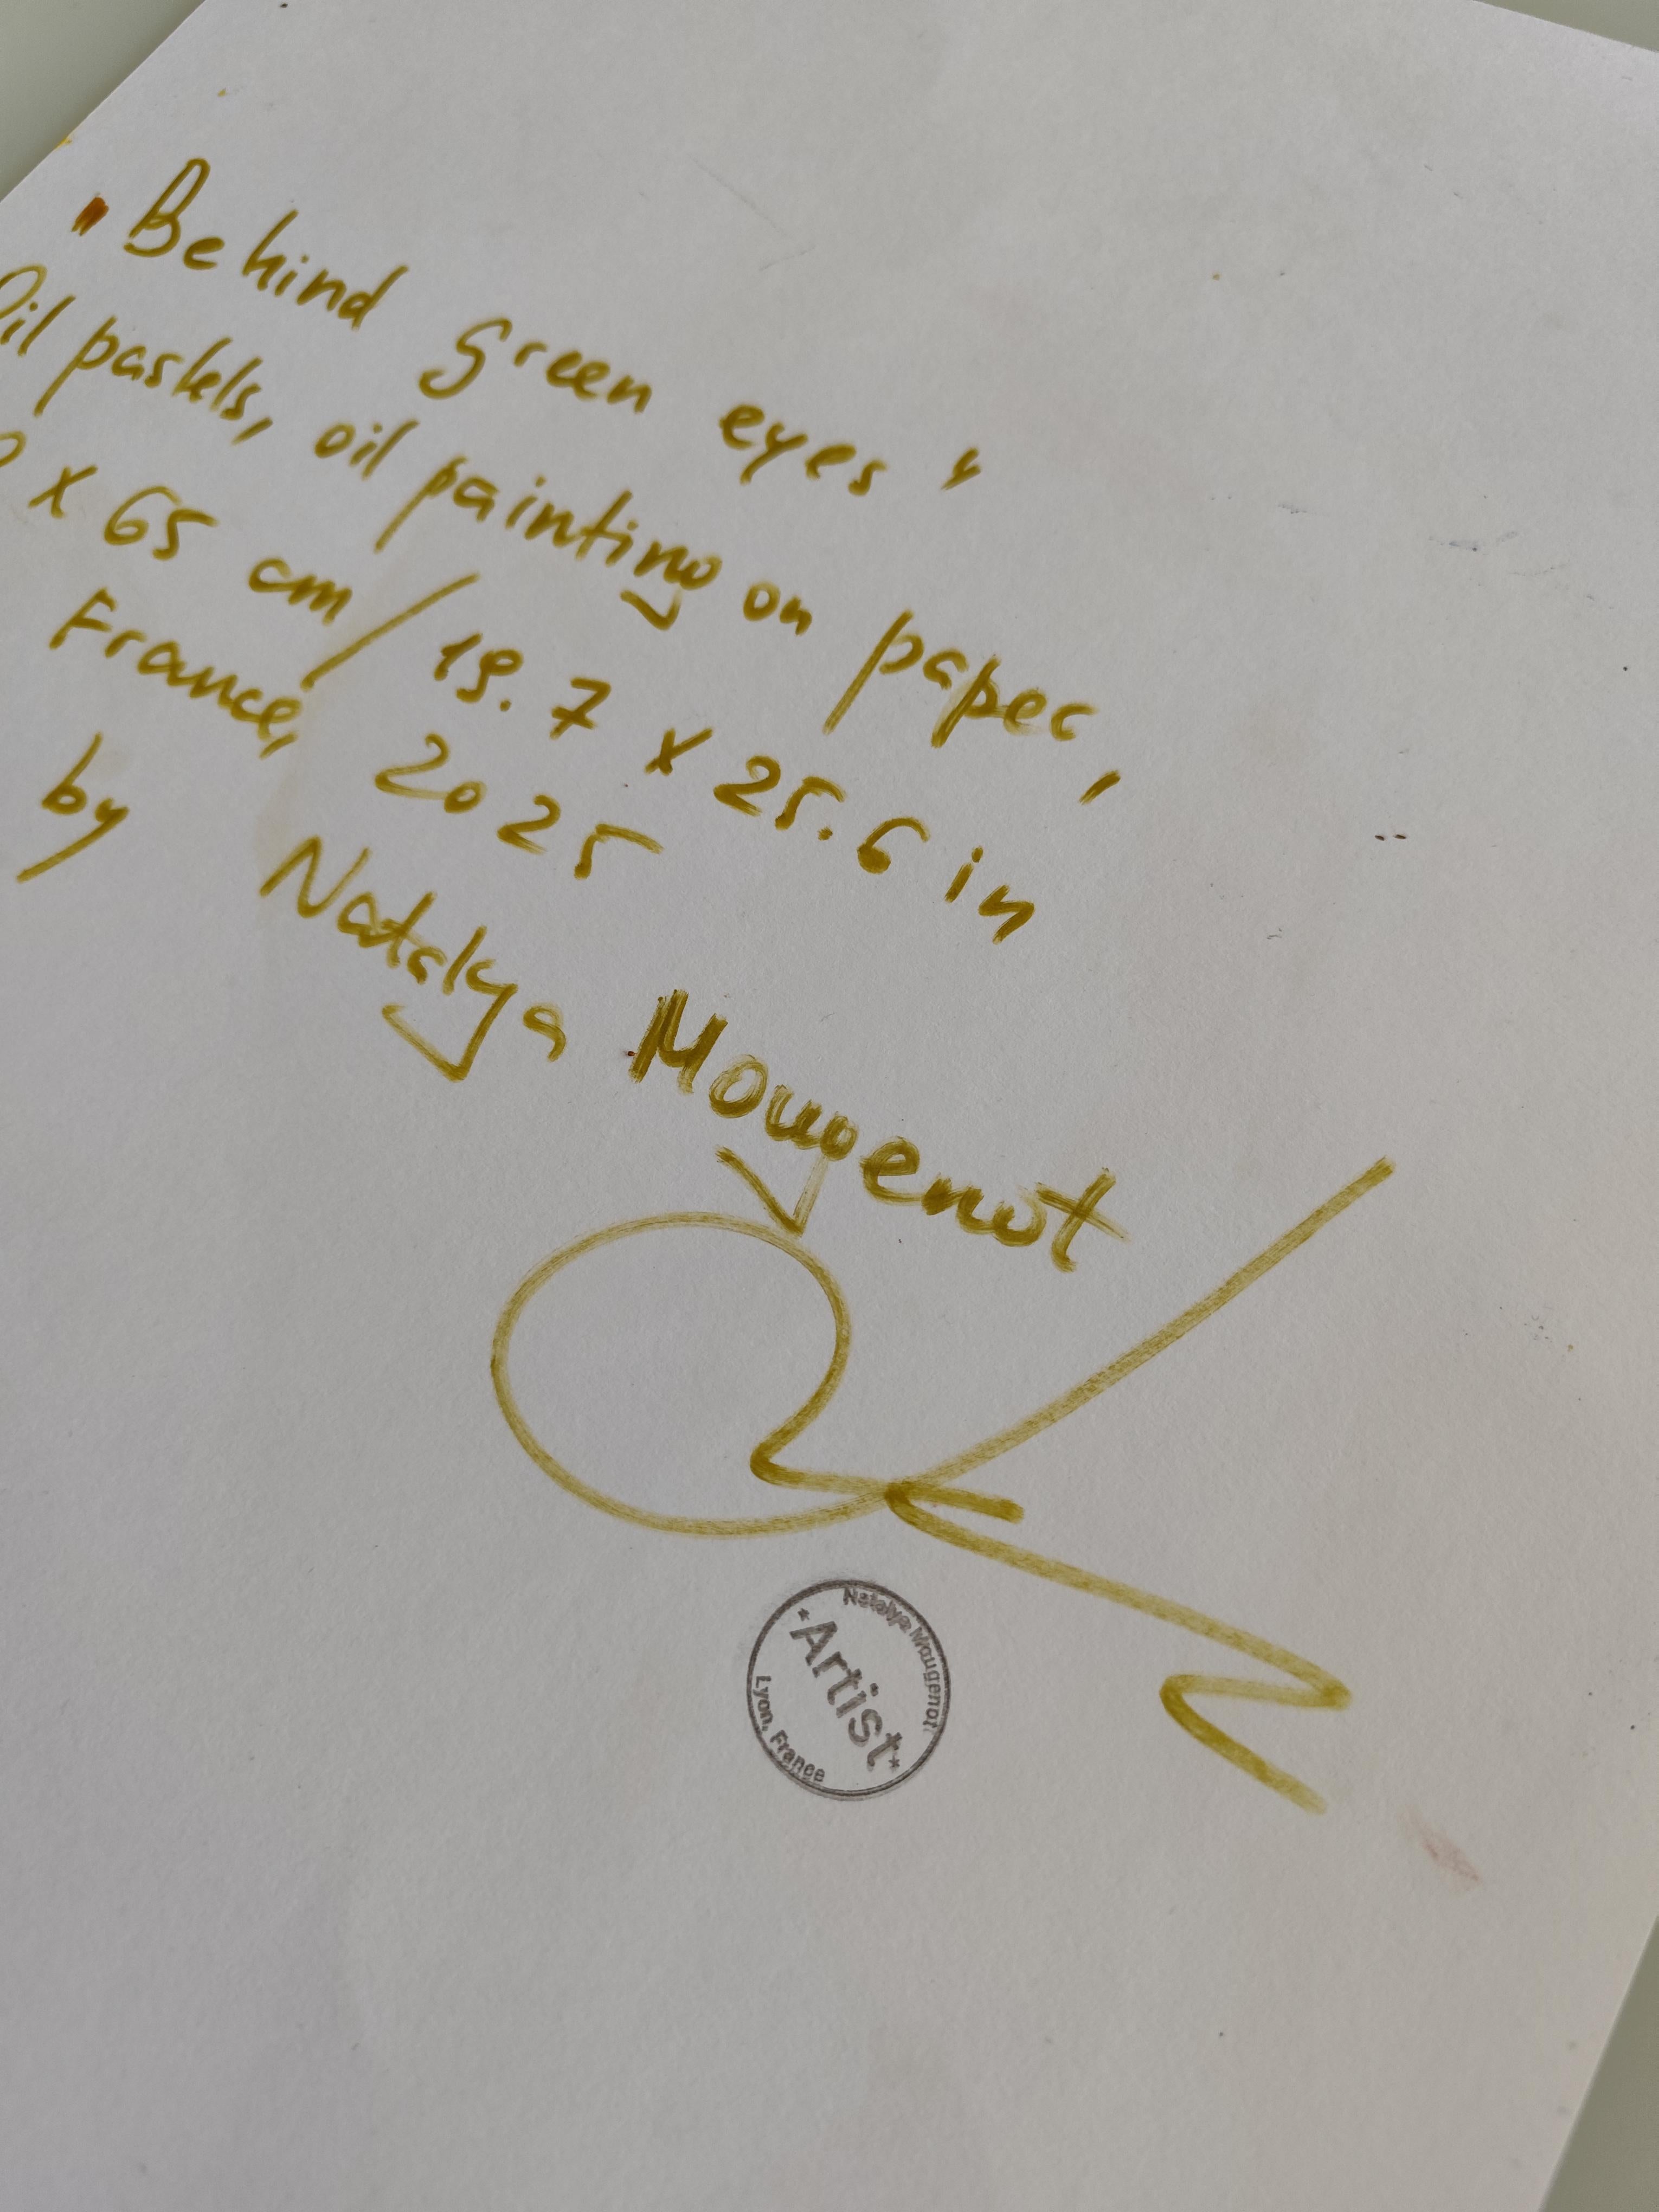 "Behind green eyes"
Oil pastels, oil painting on paper,
0 x 65 cm / 19.7 x 25.6 in
France, 2025
by Natalya Mougenot
Natalya Mougenot
*Artist*
Lyon, France